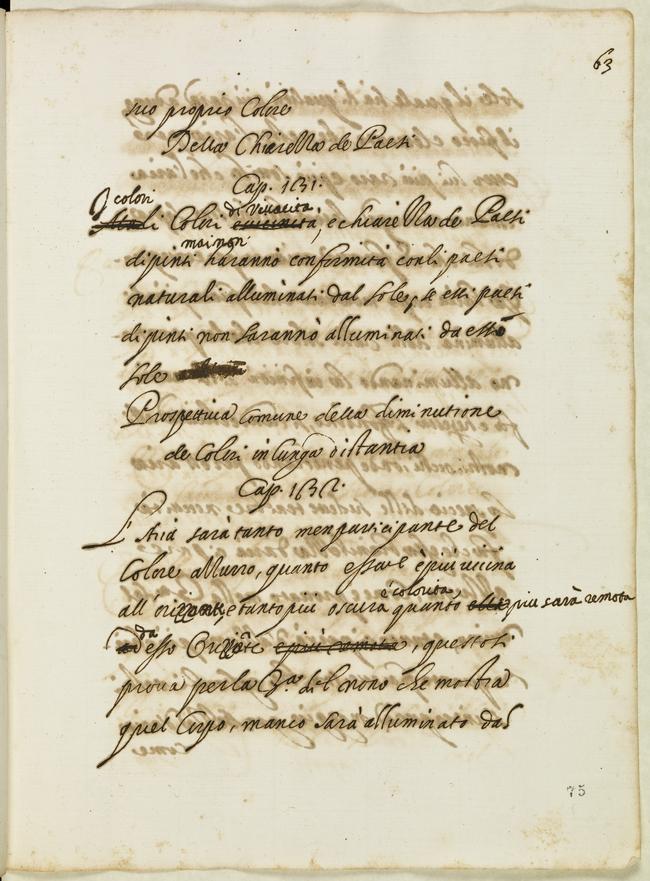 63
suo proprio Colore
Della Chiarezza de Paesi
Cap. 131.
colori
di vivacita
li Colori, e chiarezza de Paesi
mai non
dipinti haranno conformità con li paesi
naturali alluminati dal sole, se essi paesi
dipinti non saranno alluminati da esso
sole
Prospettiva Comune della diminutione
de Colori in lunga distantia
Cap. 132.
L'Aria sarà tanto men participante del
Colore azzurro, quanto essa è più vicina
è colorita,
all'orizonte, e tanto più oscura quanto più sarà remota
da
esso Orizonte, questo si
prova per la del nono che mostra
quel Corpo, manco sarà alluminato dal
come
75